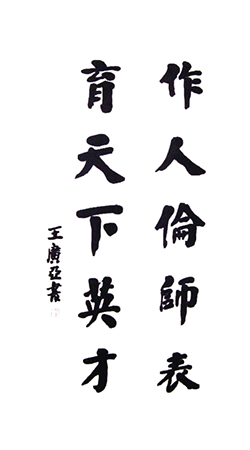 作人倫師表
育天下英才
王廣亞書